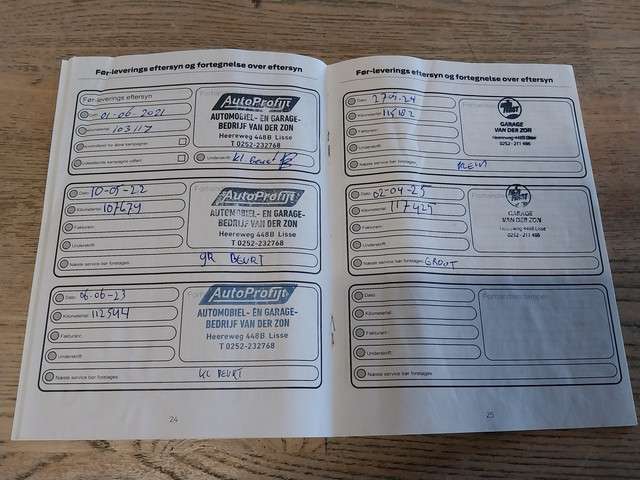 Før-leverings eftersyn og fortegnelse over eftersyn
Før-leverings eftersyn
01-06-2021
103117
AutoProfijt
AUTOMOBIEL- EN GARAGE-
BEDRIJF VAN DER ZON
Heereweg 448B Lisse
T 0252-232768
Underskrift: kl Beurt
Dato: 10-05-22
Kilometertal: 107679
Fakturanr.:
Underskrift:
Næste service bør foretages: gR BEURT
AutoProfijt
AUTOMOBIEL- EN GARAGE-
BEDRIJF VAN DER ZON
Heereweg 448B Lisse
T 0252-232768
Dato: 06-06-23
Kilometertal: 112544
Fakturanr.:
Underskrift:
Næste service bør foretages: KL BEURT
AutoProfijt
AUTOMOBIEL- EN GARAGE-
BEDRIJF VAN DER ZON
Heereweg 448B Lisse
T 0252-232768
24
Før-leverings eftersyn og fortegnelse over eftersyn
Dato:
Kilometertal:
Fakturanr.:
Underskrift:
Næste service bør foretages:
GARAGE
VAN DER ZON
Heereweg 448 Lisse
0252 - 211 486
Dato: 02-04-25
Kilometertal: 117425
Fakturanr.:
Underskrift:
Næste service bør foretages: GROOT
GARAGE
VAN DER ZON
Heereweg 448 Lisse
0252 - 211 486
Dato:
Kilometertal:
Fakturanr.:
Underskrift:
Næste service bør foretages:
Forhandlerstempel
25